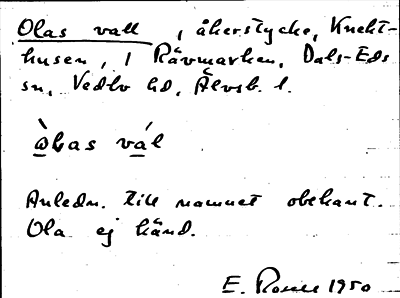 Olas vall, åkerstycke, Knekt-
husen, i Rävmarken, Dals-Eds
sn, Vedbo hd, Älvsb. l.
òlas vál
Anledn. till namnet obekant.
Ola ej känd.
E. 1950